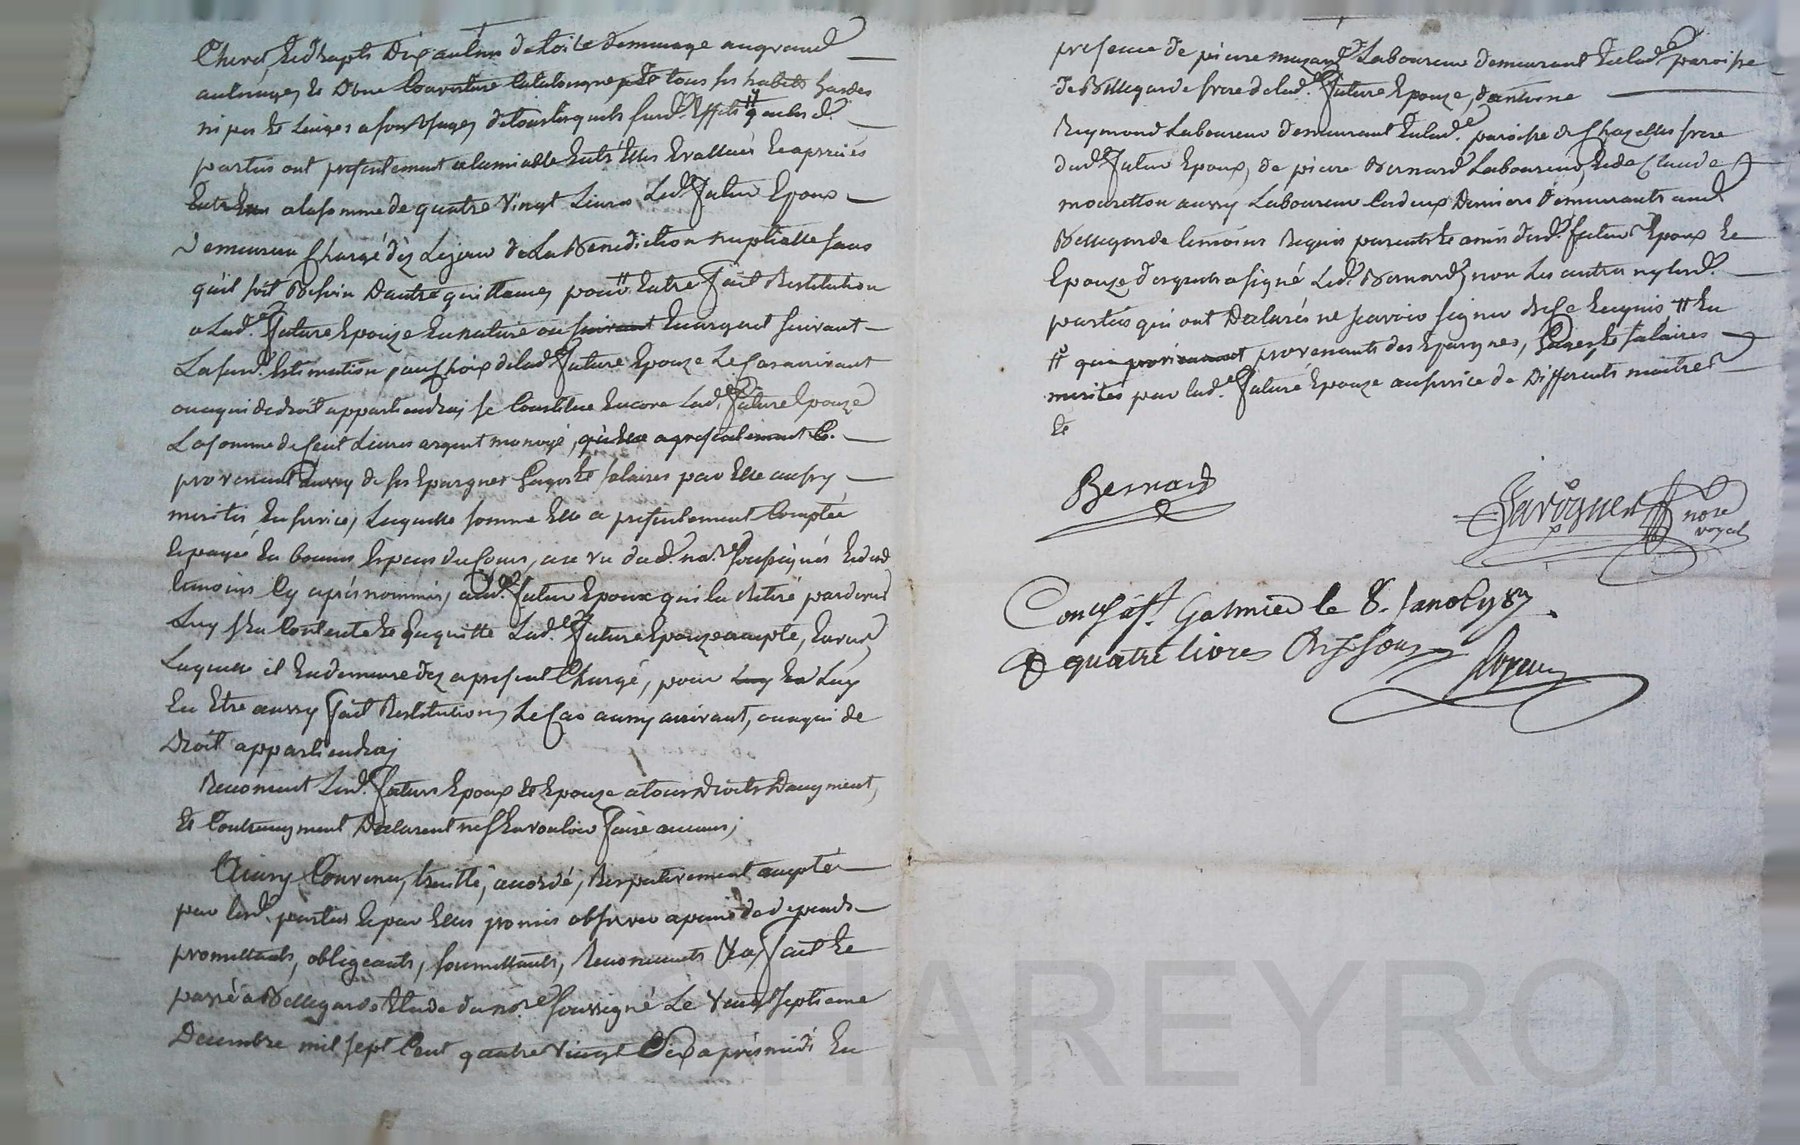 Chevet, six draps dix aulnes de toile de menage augrand
aulnages et d'une Couverture Catalongne, et de tous ses habits hardes
nipes et Linges a son Usages de tous lesquels susd. Effets # quelesd.
parties ont presentement alamiable Entr'Elles Evallués et apreciés
Entr'Eux alasomme de quatre Vingt Livres Led. futur Epoux
demeurera Chargé dèz Lejour de La Benediction nuptialle sans
qu'il soit Besoin D'autre quittance, pour Entre fait Restitution
a Lad. future Epouze En nature ou suivant En argent suivant
La susd. Estimation, au Choix delad. future Epouze Le Cas arrivant
ou aqui de droit appartiendra; se Constitue Encore Lad. future Epouze
La somme de Cent Livres argent monoyé, qu'elle a presentement C.
provenant aussy de ses Epargnes Gages et salaires par Elle aussy
merités En service, Laquelle somme Elle a presentement Comptée
et payée En bonnes Especes du Cours, au vu dud. no.re soussigné et desd.
temoins Cy après nommés, aud. futur Epoux qui la Retiré pardevers
Luy s'En Contente et En quitte Lad. future Epouze acepté, Envers
Laquelle il En demeure dez apresent Chargé, pour Luy En Luy
En Etre aussy fait Restitution, Le Cas aussy arrivant, ou aqui de
Droit appartiendra;
Renoncent Lesd. futurs Epoux et Epouze atous Droits D'augment,
et Contreaugment Declarent ne s'En vouloir faire aucuns;
Ainsy Convenu, traitté, accordé, Respectivement accepté
par Lesd. parties et par Elles promis observer apeine de depends
promettants, obligeants, soumettants, Renonceants &a, fait et
passé a Bellegarde Etude du no.re soussigné Le Vingt septieme
Decembre mil sept Cent quatre Vingt Six après midi En
presence de pierre Laboureur demeurant Enlad. paroisse
de Bellegarde frere delad. future Epouze, d'antoine
Reymond Laboureur demeurant Enlad. paroisse de Chazelles frere
dud. futur Epoux, de pierre Bernard Laboureur, et de Claude
mouretton aussy Laboureur Cesdeux Derniers demeurants aud.
Bellegarde temoins Requis parents et amis desd. futurs Epoux et
Epouze desquels a signé Led. Bernard, non Les autres ny Lesd.
parties qui ont Declarés ne scavoir signer de Ce Enquis # En
# qui provienent provenants des Epargnes, Gages et salaires
merités par Lad. future Epouze au service de Differents maitres
et
Bernard
Javoguet nore
royal
Con.lé à St. Galmier le 8. Janv. 1787.
R quatre livres dix sous
CHAREYRON